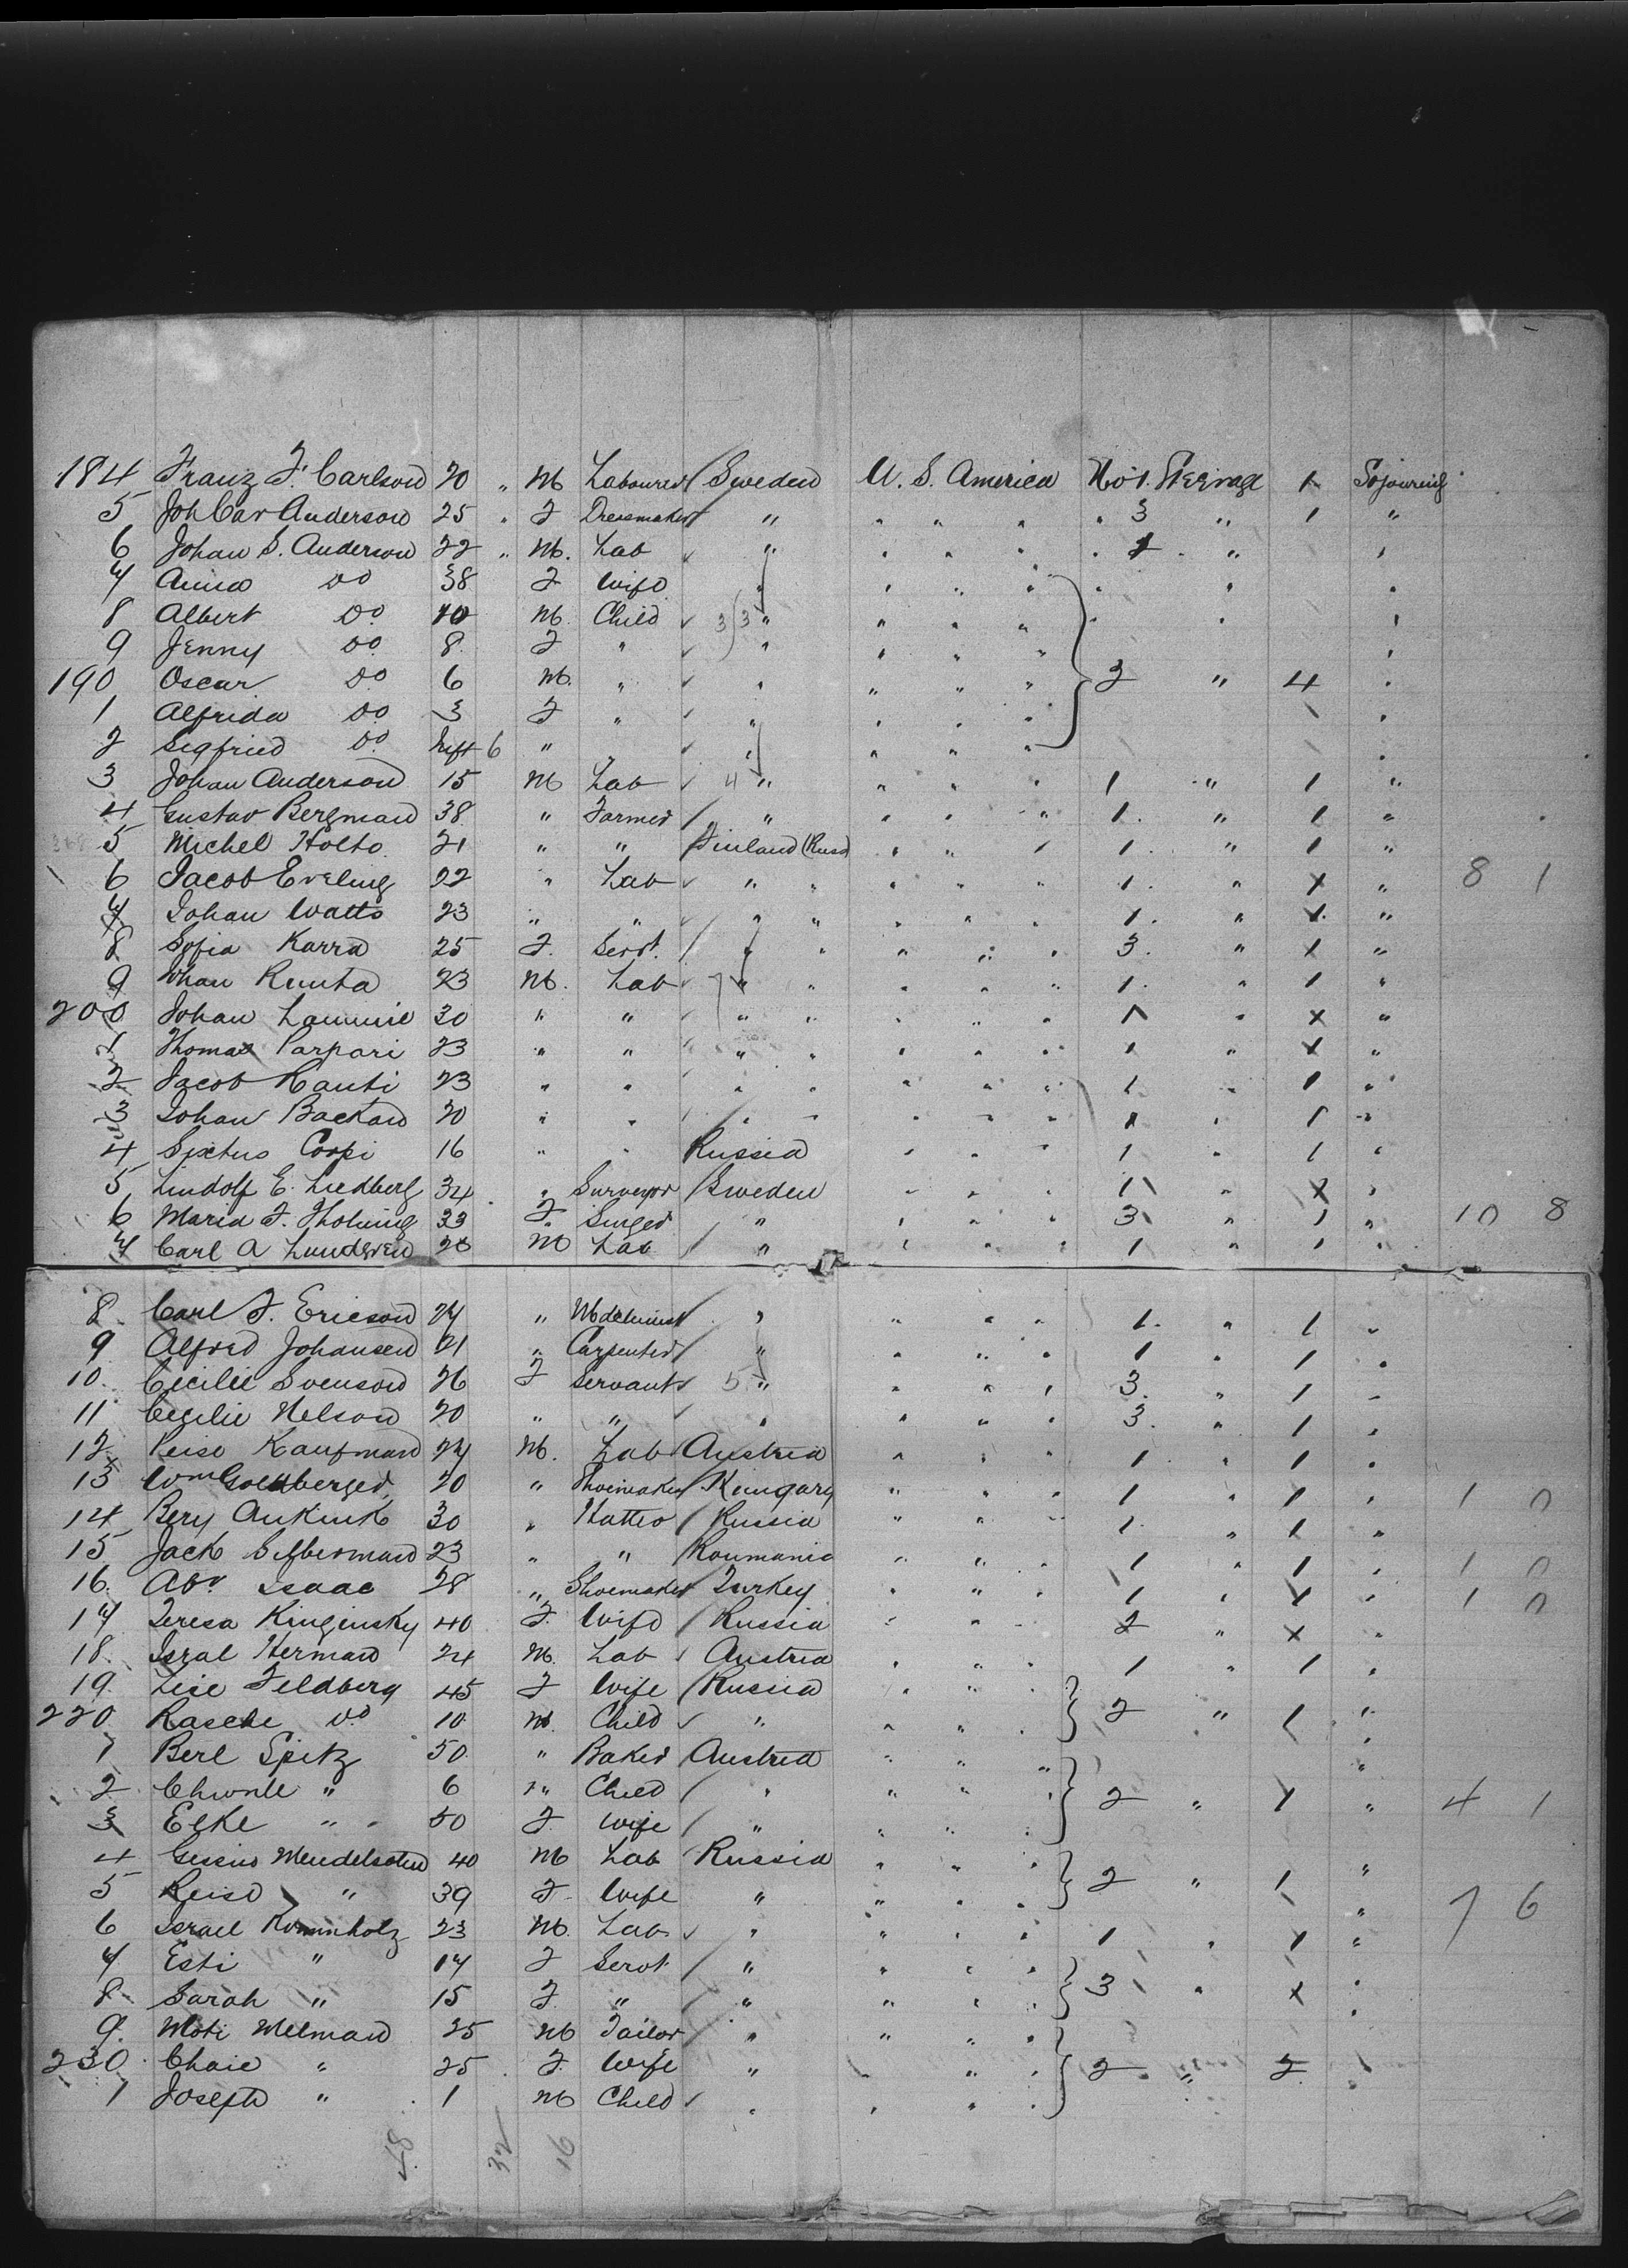 184 Franz F. Carlson 20 " M Labourer / Sweden U. S. America No 1. Steerage 1 Sojourning
5 Joh Car Anderson 25 " F Dressmaker / " " " " " 3 " 1 "
6 Johan S. Anderson 22 " M. Lab " " " " " 1 " "
7 Anna Do 38 F Wife " " " " " " "
8 Albert Do 10 M. Child 3 3 " " " " " " "
9 Jenny Do 8 F " " " " " "
190 Oscar Do 6 M. " " " " " 2 " 4 "
1 Alfrida Do 3 F " " " " " "
2 Sigfried Do Inft 6 " " " " " "
3 Johan Anderson 15 M Lab 4 " " " " 1 " 1 "
4 Gustav Bergman 38 " Farmer / " " " " 1. " 1 "
5 Michel Holto 21 " " Finland (Russ) " " " 1. " 1 "
6 Jacob Eveling 22 " Lab " " " " " 1. " 1 " 8 1
7 Johan Watts 23 " " " " " " " 1. " 1 "
8 Sofia Karra 25 F. Servt. / " " " " " 3. " 1 "
9 Johan Runta 23 M. Lab 7 " " " " " 1. " 1 "
200 Johan 30 " " " " " " " 1 " x "
1 Thomas Parpari 23 " " " " " " " 1 " 1 "
2 Jacob Kanti 23 " " " " " " " 1 " 1 "
3 Johan Backan 20 " " " " " " " 1 " 1 "
4 Sixtus 16 " " Russia " " " 1 " 1 "
5 Lindolf E. Liedberg 34 " Surveyor / Sweden " " " 1 " 1 "
6 Maria F. 33 F Singer " " " " 3 " 1 " 10 8
7 Carl A Lundgren 20 M Lab / " " " " 1 " 1 "
8 Carl F. Ericson 24 " Machinist / " " " " 1. " 1 "
9 Alfred Johansen 21 " Carpenter / " " " " 1 " 1 "
10. Cicilie Svenson 26 F Servant 5 " " " " 3. " 1 "
11 Cecilie Nelson 20 " " " " " " 3. " 1 "
12 Kaufman 24 M. Lab Austria " " " 1. " 1 "
13 Wm Goldberger 20 " Shoemaker / Hungary " " " 1 " 1 " 1 0
14 Bery 30 " Hatter / Russia " " " 1. " 1 "
15 Jack Silberman 23 " " Roumania " " " 1 " 1 " 1 0
16. Abr Isaac 28 " Shoemaker Turkey " " 1 " 1 " 1 0
17 Teresa Kinginsky 40 F. Wife / Russia " " " 2 " x "
18. Isral Herman 24 M. Lab Austria " " " 1 " 1 "
19 Lise Feldberg 45 F Wife / Russia " " "
220 Rasche Do 10 M. Child " " " " 2 " 1 "
1 Berl Spitz 50 " Baker Austria " " " "
2 " 6 " Child / " " " " 2 " 1 " 4 1
3 Elke " 50 F. Wife / " " " "
4 40 M Lab Russia " " " "
5 " 39 F. Wife " " " " 2 " 1 " 7 6
6 Israel 23 M. Lab " " " " 1 " 1 "
7 Esti " 17 F Servt / " " " " "
8 Sarah " 15 F. " / " " " " 3 " x "
9. Moti Melman 25 M Tailor / " " " "
230 Chaie " 25 F. Wife " " " 2 " 2 "
1 Joseph " 1 M Child " " " "
48 32 16